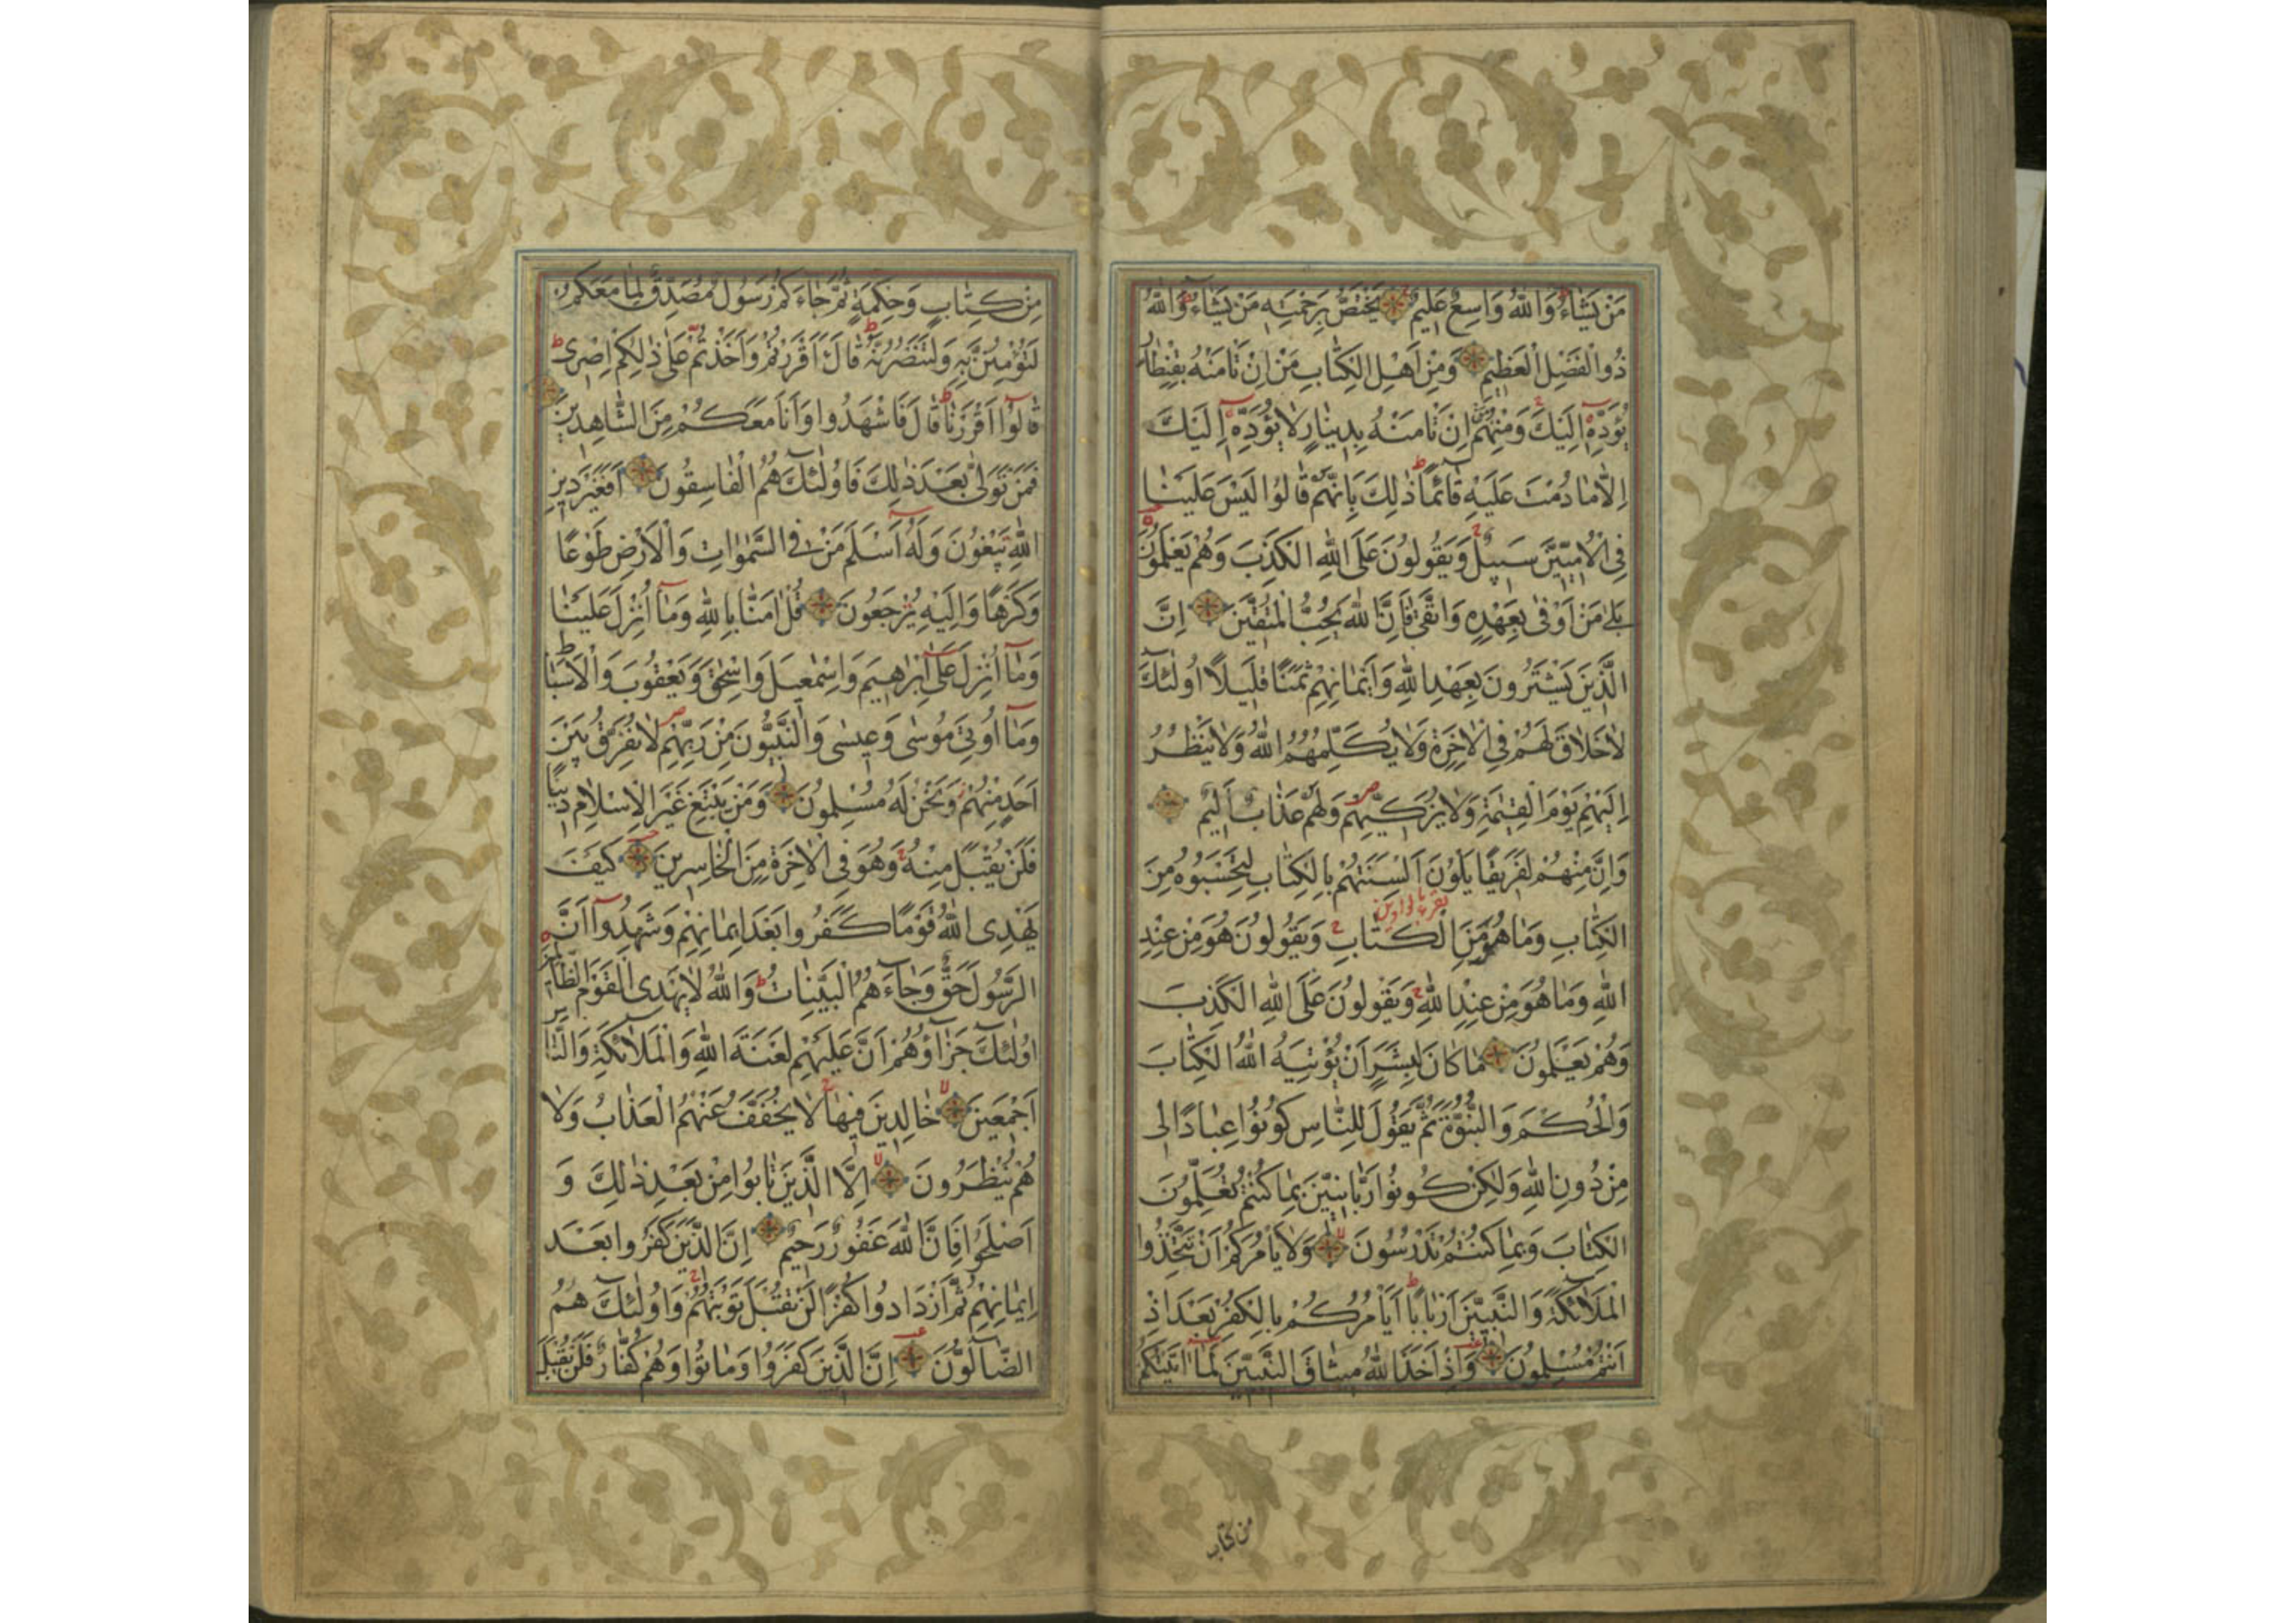 مَنْ يَشَاءُ وَاللّٰهُ وَاسِعٌ عَلِيمٌ يَخْتَصُّ بِرَحْمَتِهِ مَنْ يَشَاءُ وَاللّٰهُ
ذُو الْفَضْلِ الْعَظِيمِ وَمِنْ اَهْلِ الْكِتَابِ مَنْ اِنْ تَاْمَنْهُ بِقِنْطَارٍ
يُؤَدِّهِ اِلَيْكَ وَمِنْهُمْ مَنْ اِنْ تَاْمَنْهُ بِدِينَارٍ لَا يُؤَدِّهِ اِلَيْكَ
اِلَّا مَا دُمْتَ عَلَيْهِ قَائِمًا ذٰلِكَ بِاَنَّهُمْ قَالُوا لَيْسَ عَلَيْنَا
فِى الْاُمِّيِّنَ سَبِيلٌ وَيَقُولُونَ عَلَى اللّٰهِ الْكَذِبَ وَهُمْ يَعْلَمُونَ
بَلٰى مَنْ اَوْفٰى بِعَهْدِهِ وَاتَّقٰى فَاِنَّ اللّٰهَ يُحِبُّ الْمُتَّقِينَ اِنَّ
الَّذِينَ يَشْتَرُونَ بِعَهْدِ اللّٰهِ وَاَيْمَانِهِمْ ثَمَنًا قَلِيلًا اُولٰئِكَ
لَا خَلَاقَ لَهُمْ فِى الْاٰخِرَةِ وَلَا يُكَلِّمُهُمُ اللّٰهُ وَلَا يَنْظُرُ
اِلَيْهِمْ يَوْمَ الْقِيٰمَةِ وَلَا يُزَكِّيهِمْ وَلَهُمْ عَذَابٌ اَلِيمٌ
وَاِنَّ مِنْهُمْ لَفَرِيقًا يَلْوُنَ اَلْسِنَتَهُمْ بِالْكِتَابِ لِتَحْسَبُوهُ مِنَ
الْكِتَابِ وَمَا هُوَ مِنَ الْكِتَابِ وَيَقُولُونَ هُوَ مِنْ عِنْدِ
اللّٰهِ وَمَا هُوَ مِنْ عِنْدِ اللّٰهِ وَيَقُولُونَ عَلَى اللّٰهِ الْكَذِبَ
وَهُمْ يَعْلَمُونَ مَا كَانَ لِبَشَرٍ اَنْ يُؤْتِيَهُ اللّٰهُ الْكِتَابَ
وَالْحُكْمَ وَالنُّبُوَّةَ ثُمَّ يَقُولَ لِلنَّاسِ كُونُوا عِبَادًا لِى
مِنْ دُونِ اللّٰهِ وَلٰكِنْ كُونُوا رَبَّانِيِّنَ بِمَا كُنْتُمْ تُعَلِّمُونَ
الْكِتَابَ وَبِمَا كُنْتُمْ تَدْرُسُونَ وَلَا يَاْمُرَكُمْ اَنْ تَتَّخِذُوا
الْمَلَائِكَةَ وَالنَّبِيِّنَ اَرْبَابًا اَيَاْمُرُكُمْ بِالْكُفْرِ بَعْدَ اِذْ
اَنْتُمْ مُسْلِمُونَ وَاِذْ اَخَذَ اللّٰهُ مِيثَاقَ النَّبِيِّنَ لَمَا اٰتَيْتُكُمْ
من كتاب
مِنْ كِتَابٍ وَحِكْمَةٍ ثُمَّ جَاءَكُمْ رَسُولٌ مُصَدِّقٌ لِمَا مَعَكُمْ
لَتُؤْمِنُنَّ بِهِ وَلَتَنْصُرُنَّهُ قَالَ ءَاَقْرَرْتُمْ وَاَخَذْتُمْ عَلٰى ذٰلِكُمْ اِصْرِى
قَالُوا اَقْرَرْنَا قَالَ فَاشْهَدُوا وَاَنَا مَعَكُمْ مِنَ الشَّاهِدِينَ
فَمَنْ تَوَلّٰى بَعْدَ ذٰلِكَ فَاُولٰئِكَ هُمُ الْفَاسِقُونَ اَفَغَيْرَ دِينِ
اللّٰهِ يَبْغُونَ وَلَهُ اَسْلَمَ مَنْ فِى السَّمٰوَاتِ وَالْاَرْضِ طَوْعًا
وَكَرْهًا وَاِلَيْهِ يُرْجَعُونَ قُلْ اٰمَنَّا بِاللّٰهِ وَمَا اُنْزِلَ عَلَيْنَا
وَمَا اُنْزِلَ عَلٰى اِبْرٰهِيمَ وَاِسْمٰعِيلَ وَاِسْحٰقَ وَيَعْقُوبَ وَالْاَسْبَاطِ
وَمَا اُوتِىَ مُوسٰى وَعِيسٰى وَالنَّبِيُّونَ مِنْ رَبِّهِمْ لَا نُفَرِّقُ بَيْنَ
اَحَدٍ مِنْهُمْ وَنَحْنُ لَهُ مُسْلِمُونَ وَمَنْ يَبْتَغِ غَيْرَ الْاِسْلَامِ دِينًا
فَلَنْ يُقْبَلَ مِنْهُ وَهُوَ فِى الْاٰخِرَةِ مِنَ الْخَاسِرِينَ كَيْفَ
يَهْدِى اللّٰهُ قَوْمًا كَفَرُوا بَعْدَ اِيمَانِهِمْ وَشَهِدُوا اَنَّ
الرَّسُولَ حَقٌّ وَجَاءَهُمُ الْبَيِّنَاتُ وَاللّٰهُ لَا يَهْدِى الْقَوْمَ الظَّالِمِينَ
اُولٰئِكَ جَزَاؤُهُمْ اَنَّ عَلَيْهِمْ لَعْنَةَ اللّٰهِ وَالْمَلَائِكَةِ وَالنَّاسِ
اَجْمَعِينَ خَالِدِينَ فِيهَا لَا يُخَفَّفُ عَنْهُمُ الْعَذَابُ وَلَا
هُمْ يُنْظَرُونَ اِلَّا الَّذِينَ تَابُوا مِنْ بَعْدِ ذٰلِكَ وَ
اَصْلَحُوا فَاِنَّ اللّٰهَ غَفُورٌ رَحِيمٌ اِنَّ الَّذِينَ كَفَرُوا بَعْدَ
اِيمَانِهِمْ ثُمَّ ازْدَادُوا كُفْرًا لَنْ تُقْبَلَ تَوْبَتُهُمْ وَاُولٰئِكَ هُمُ
الضَّالُّونَ اِنَّ الَّذِينَ كَفَرُوا وَمَاتُوا وَهُمْ كُفَّارٌ فَلَنْ يُقْبَلَ